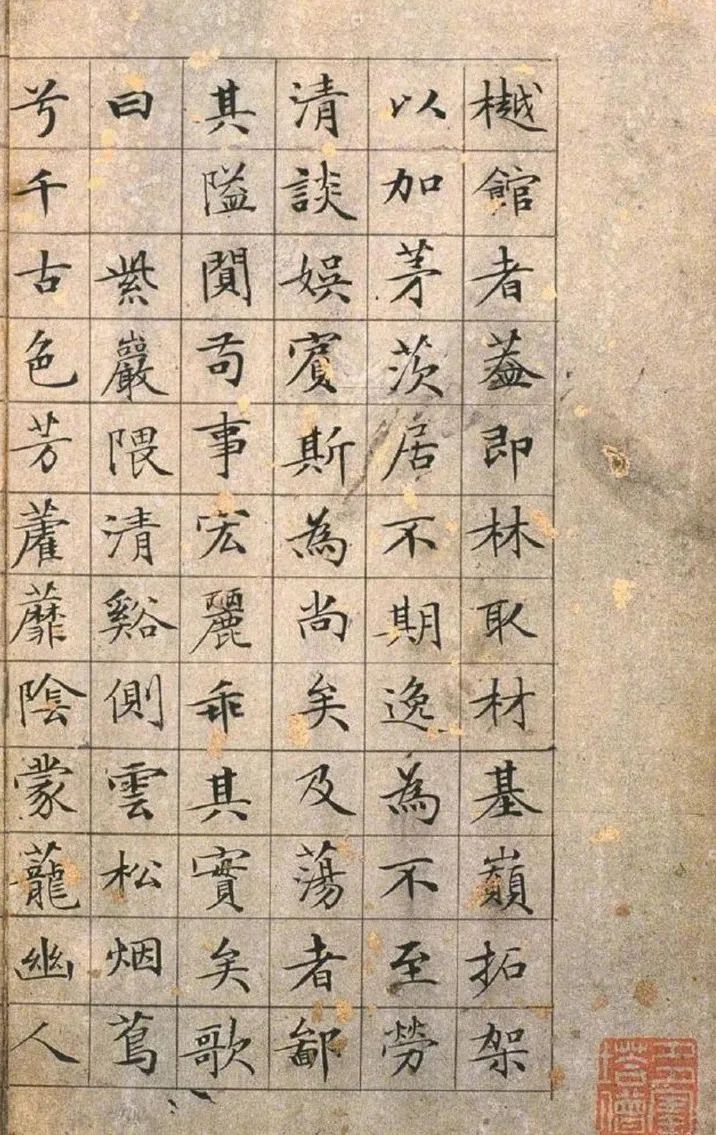 樾館者蓋即林取材基巔拓架
以加茅茨居不期逸為不至勞
清談娛賓斯為尚矣及蕩者鄙
其隘閴苟事宏麗乖其實矣歌
曰 紫巖隈清谿側雲松烟蔦
兮千古色芳藿蘼陰蒙蘢幽人